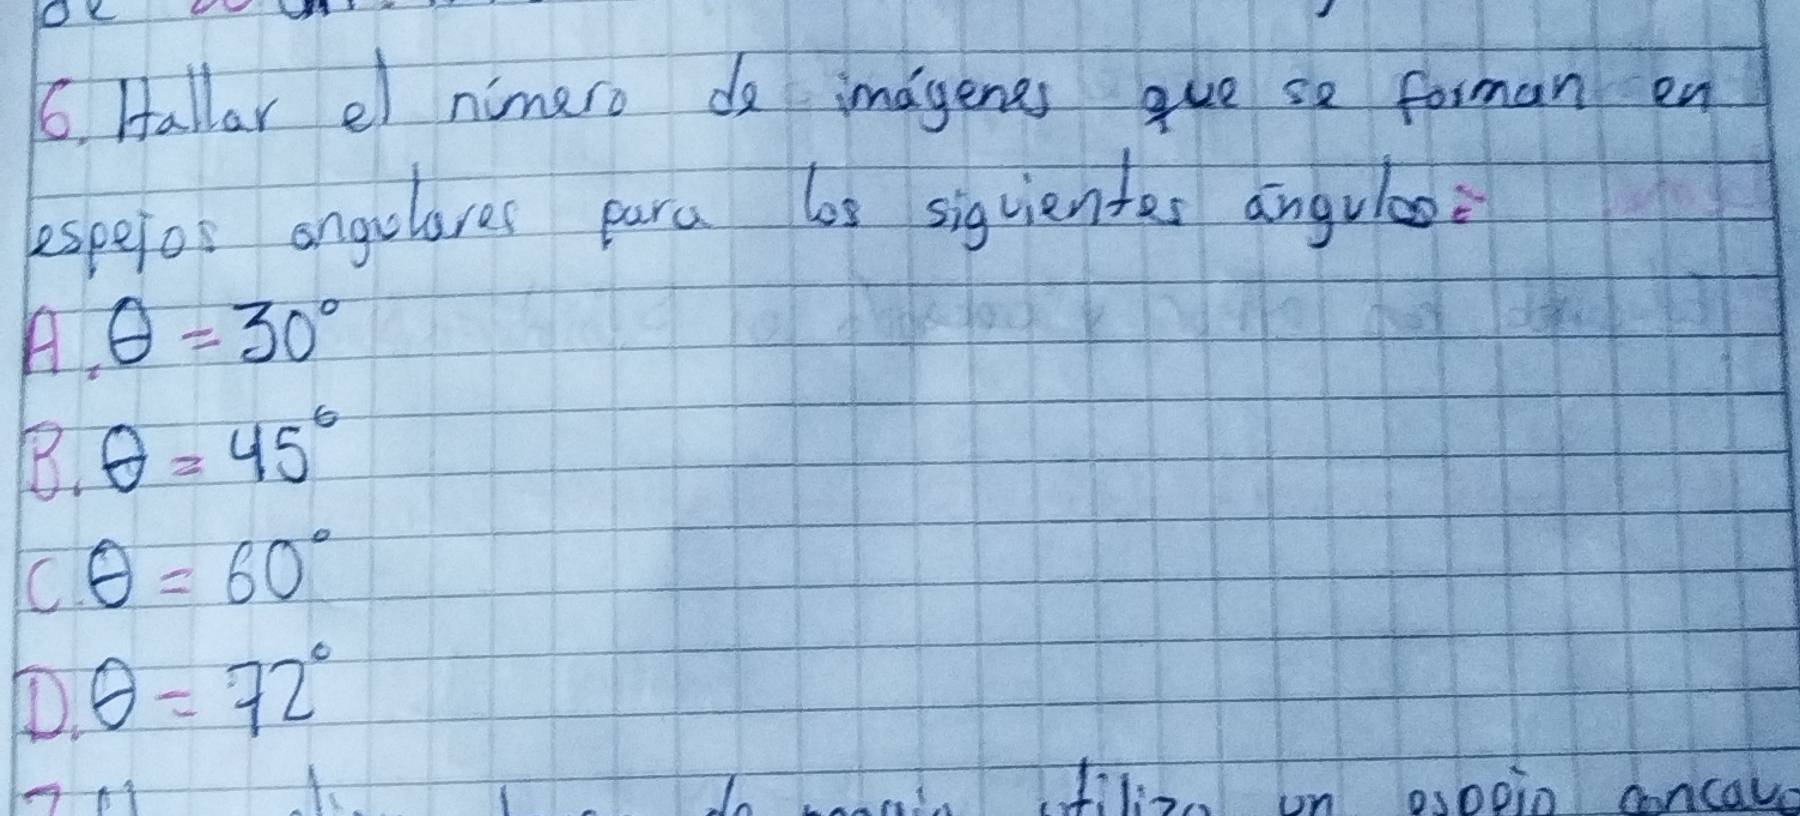 6. Hallar el número de imágenes que se forman en
espejos angulares para los siguientes ángulos:
A. θ = 30°
B. θ = 45°
C. θ = 60°
D. θ = 72°
un espejo concavo